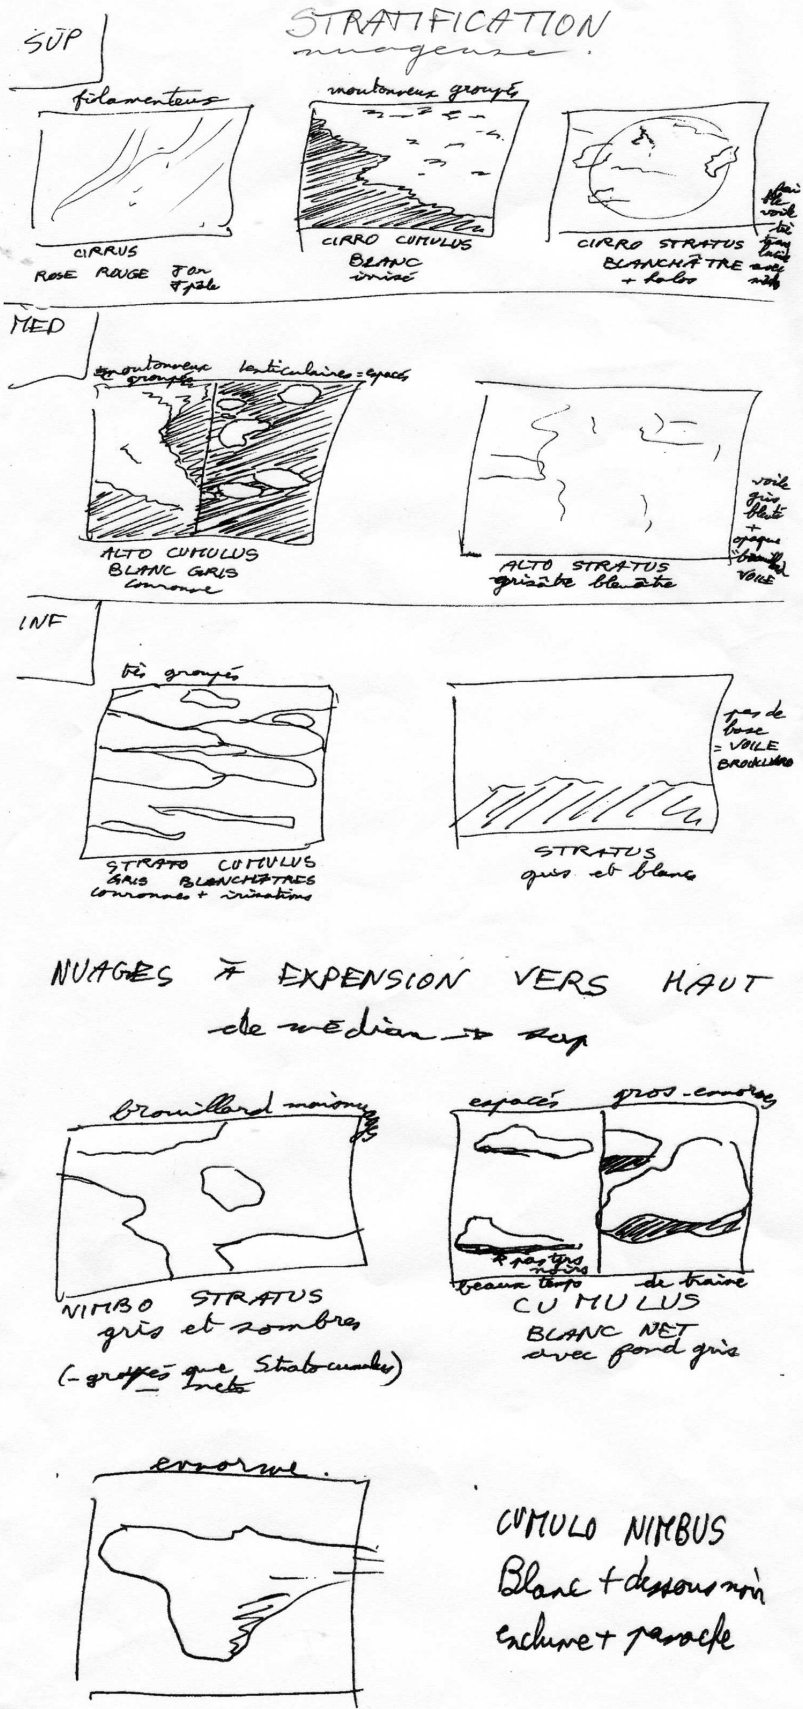 STRATIFICATION
nuageuse.
SUP
filamenteux
moutonneux groupés
CIRRUS
ROSE ROUGE
CIRRO CUMULUS
BLANC
irisé
CIRRO STRATUS
BLANCHÂTRE
+ halos
voile
MED
moutonneux
groupés
lenticulaires = espacés
ALTO CUMULUS
BLANC GRIS
couronne
ALTO STRATUS
grisâtre bleuâtre
voile
gris
bleuté
+
opaque
VOILE
INF
très groupés
STRATO CUMULUS
GRIS BLANCHÂTRES
couronnes + irisations
STRATUS
gris et blanc
pas de
base
= VOILE
BROUILLARD
NUAGES À EXPENSION VERS HAUT
de médian → sup
brouillard
NIMBO STRATUS
gris et sombres
(- groupés que Stratocumulus)
nets
espacés
gros - ennormes
beaux temps
de traine
CUMULUS
BLANC NET
avec fond gris
ennorme.
CUMULO NIMBUS
Blanc + dessous noir
enclume + panache